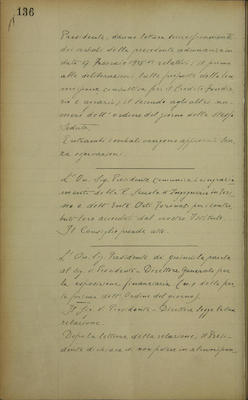 136
Presidente, danno lettura successivamente
dei verbali della precedente adunanza in
data 17 1925 relativi; il primo
alle deliberazioni sulle proposte della Com
missione consultiva per il Credito fondia
rio e agrario; il secondo agli altri nu
meri dell'ordine del giorno della stessa
seduta.
Entrambi i verbali vengono approvati sen
za osservazioni.
L'On. Sig. Presidente comunica i ringrazia
menti della R. Scuola d'Ingegneria di Tori
no e dell' per i contri
buti loro accordati dal nostro Istituto.
Il Consiglio prende atto.
L'On. Sig. Presidente dà quindi la parola
al Sig. V. Presidente - Direttore Generale per
la esposizione finanziaria (n. della par
te prima dell'Ordine del giorno).
Il Sig. V. Presidente - Direttore legge la sua
relazione.
Dopo la lettura della relazione, il Presi
dente dichiara di non potere in alcun